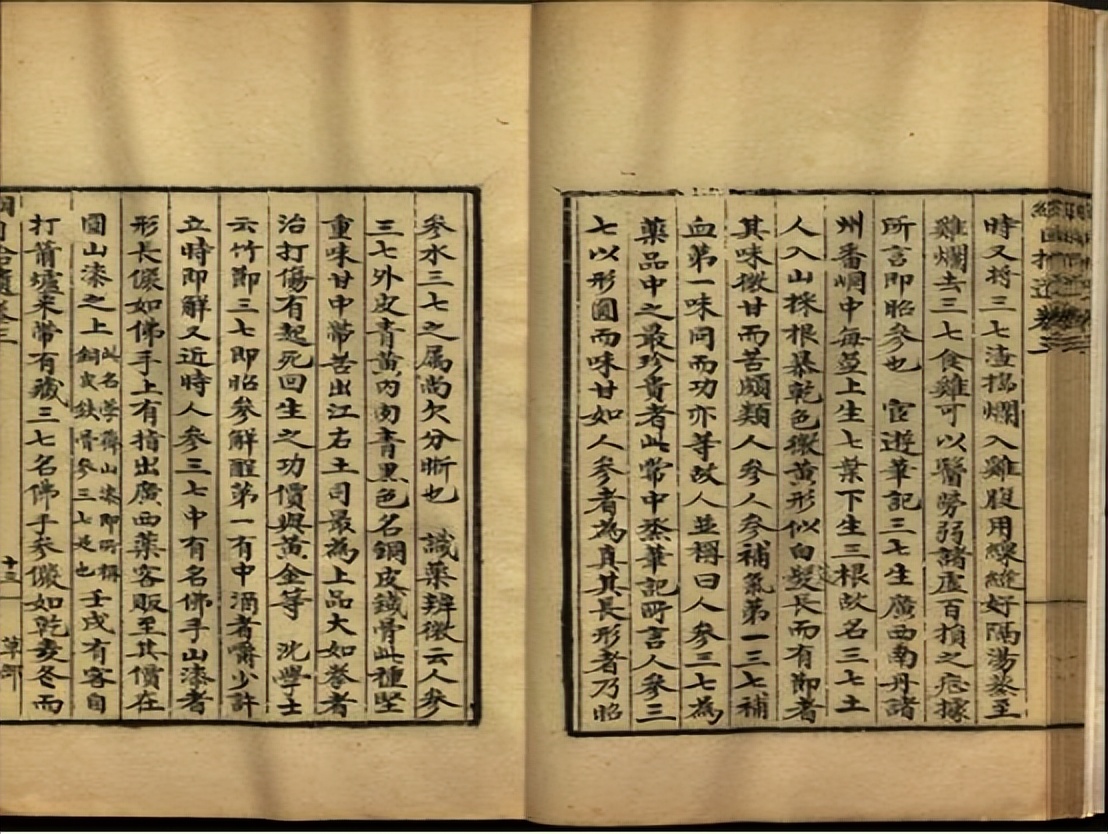 時又將三七渣搗爛入雞腹用線縫好隔湯蒸至
雞爛去三七食雞可以醫勞弱諸虛百損之症據
所言即昭參也 宦遊筆記三七生廣西南丹諸
州番峒中每莖上生七葉下生三根故名三七土
人入山採根暴乾色微黃形似白芨長而有節者
其味微甘而苦頗類人參人參補氣第一三七補
血第一味同而功亦等故人並稱曰人參三七為
藥品中之最珍貴者此常中丞筆記所言人參三
七以形圓而味甘如人參者為真其長形者乃昭
參水三七之屬尚欠分晰也 識藥辨微云人參
三七外皮青黃內肉青黑色名銅皮鐵骨此種堅
重味甘中帶苦出江右土司最為上品大如拳者
治打傷有起死回生之功價與黃金等 沈學士
云竹節三七即昭參解酲第一有中酒者嚼少許
立時即解又近時人參三七中有名佛手山漆者
形長儼如佛手上有指出廣西藥客販至其價在
圓山漆之上此名孛薺山漆即所稱銅皮鐵骨參三七是也壬戌有客自
打箭爐來帶有藏三七名佛手參儼如乾麥冬而
卷三
十三
草部